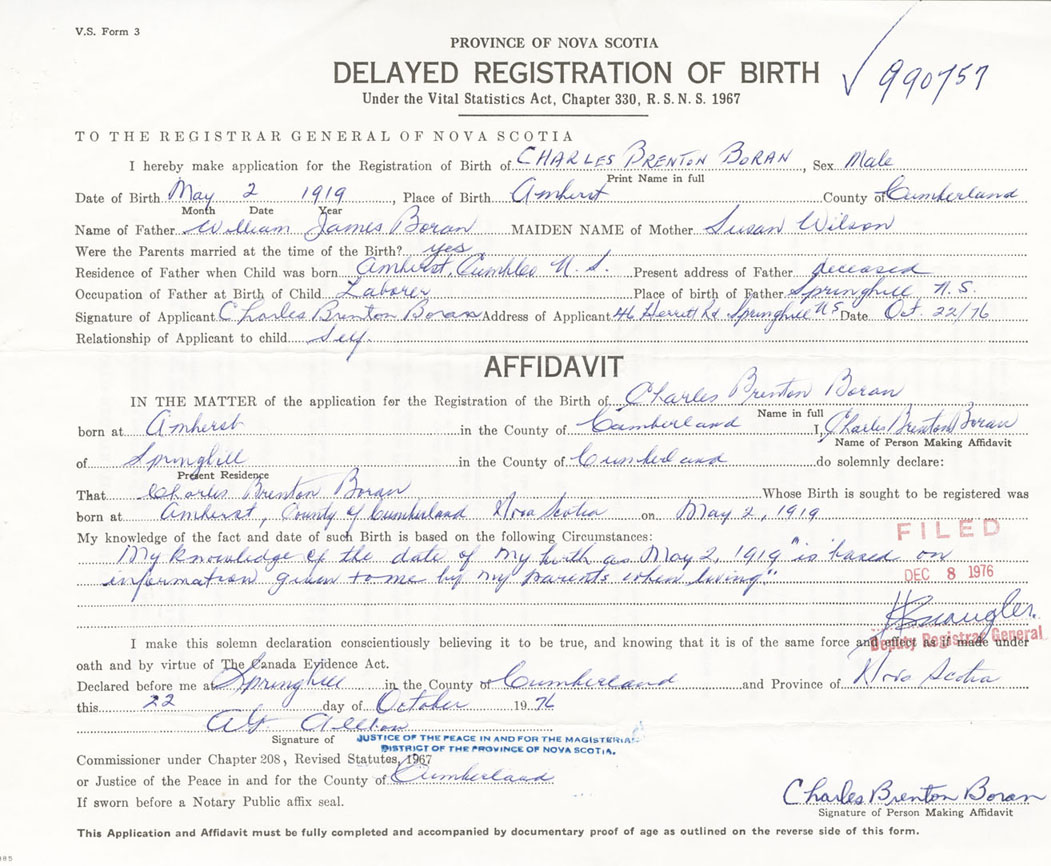 V.S. Form 3
PROVINCE OF NOVA SCOTIA
DELAYED REGISTRATION OF BIRTH
990757
Under the Vital Statistics Act, Chapter 330, R.S.N.S. 1967
TO THE REGISTRAR GENERAL OF NOVA SCOTIA
I hereby make application for the Registration of Birth of CHARLES BRENTON BORAN, Sex Male
Print Name in full
Date of Birth May 2 1919, Place of Birth Amherst County of Cumberland
Month Date Year
Name of Father William James Boran MAIDEN NAME of Mother Susan Wilson
Were the Parents married at the time of the Birth? yes
Residence of Father when Child was born Amherst, N.S. Present address of Father deceased
Occupation of Father at Birth of Child Laborer Place of birth of Father Springhill N.S.
Signature of Applicant Charles Brenton Boran Address of Applicant 46 Herrett Rd Springhill NS Date Oct. 22/76
Relationship of Applicant to child Self.
AFFIDAVIT
IN THE MATTER of the application for the Registration of the Birth of Charles Brenton Boran
Name in full
born at Amherst in the County of Cumberland I, Charles Brenton Boran
Name of Person Making Affidavit
of Springhill in the County of Cumberland do solemnly declare:
Present Residence
That Charles Brenton Boran Whose Birth is sought to be registered was
born at Amherst, County of Cumberland Nova Scotia on May 2, 1919
My knowledge of the fact and date of such Birth is based on the following Circumstances:
FILED
My knowledge of the date of my birth as May 2, 1919 "is based on
information given to me by my parents when living."
DEC 8 1976
I make this solemn declaration conscientiously believing it to be true, and knowing that it is of the same force and effect as if made under
Deputy Registrar General
oath and by virtue of The Canada Evidence Act.
Declared before me at Springhill in the County of Cumberland and Province of Nova Scotia
this 22 day of October 1976
Signature of JUSTICE OF THE PEACE IN AND FOR THE MAGISTERIAL
DISTRICT OF THE PROVINCE OF NOVA SCOTIA.
Commissioner under Chapter 208, Revised Statutes, 1967
or Justice of the Peace in and for the County of Cumberland
If sworn before a Notary Public affix seal.
Charles Brenton Boran
Signature of Person Making Affidavit
This Application and Affidavit must be fully completed and accompanied by documentary proof of age as outlined on the reverse side of this form.